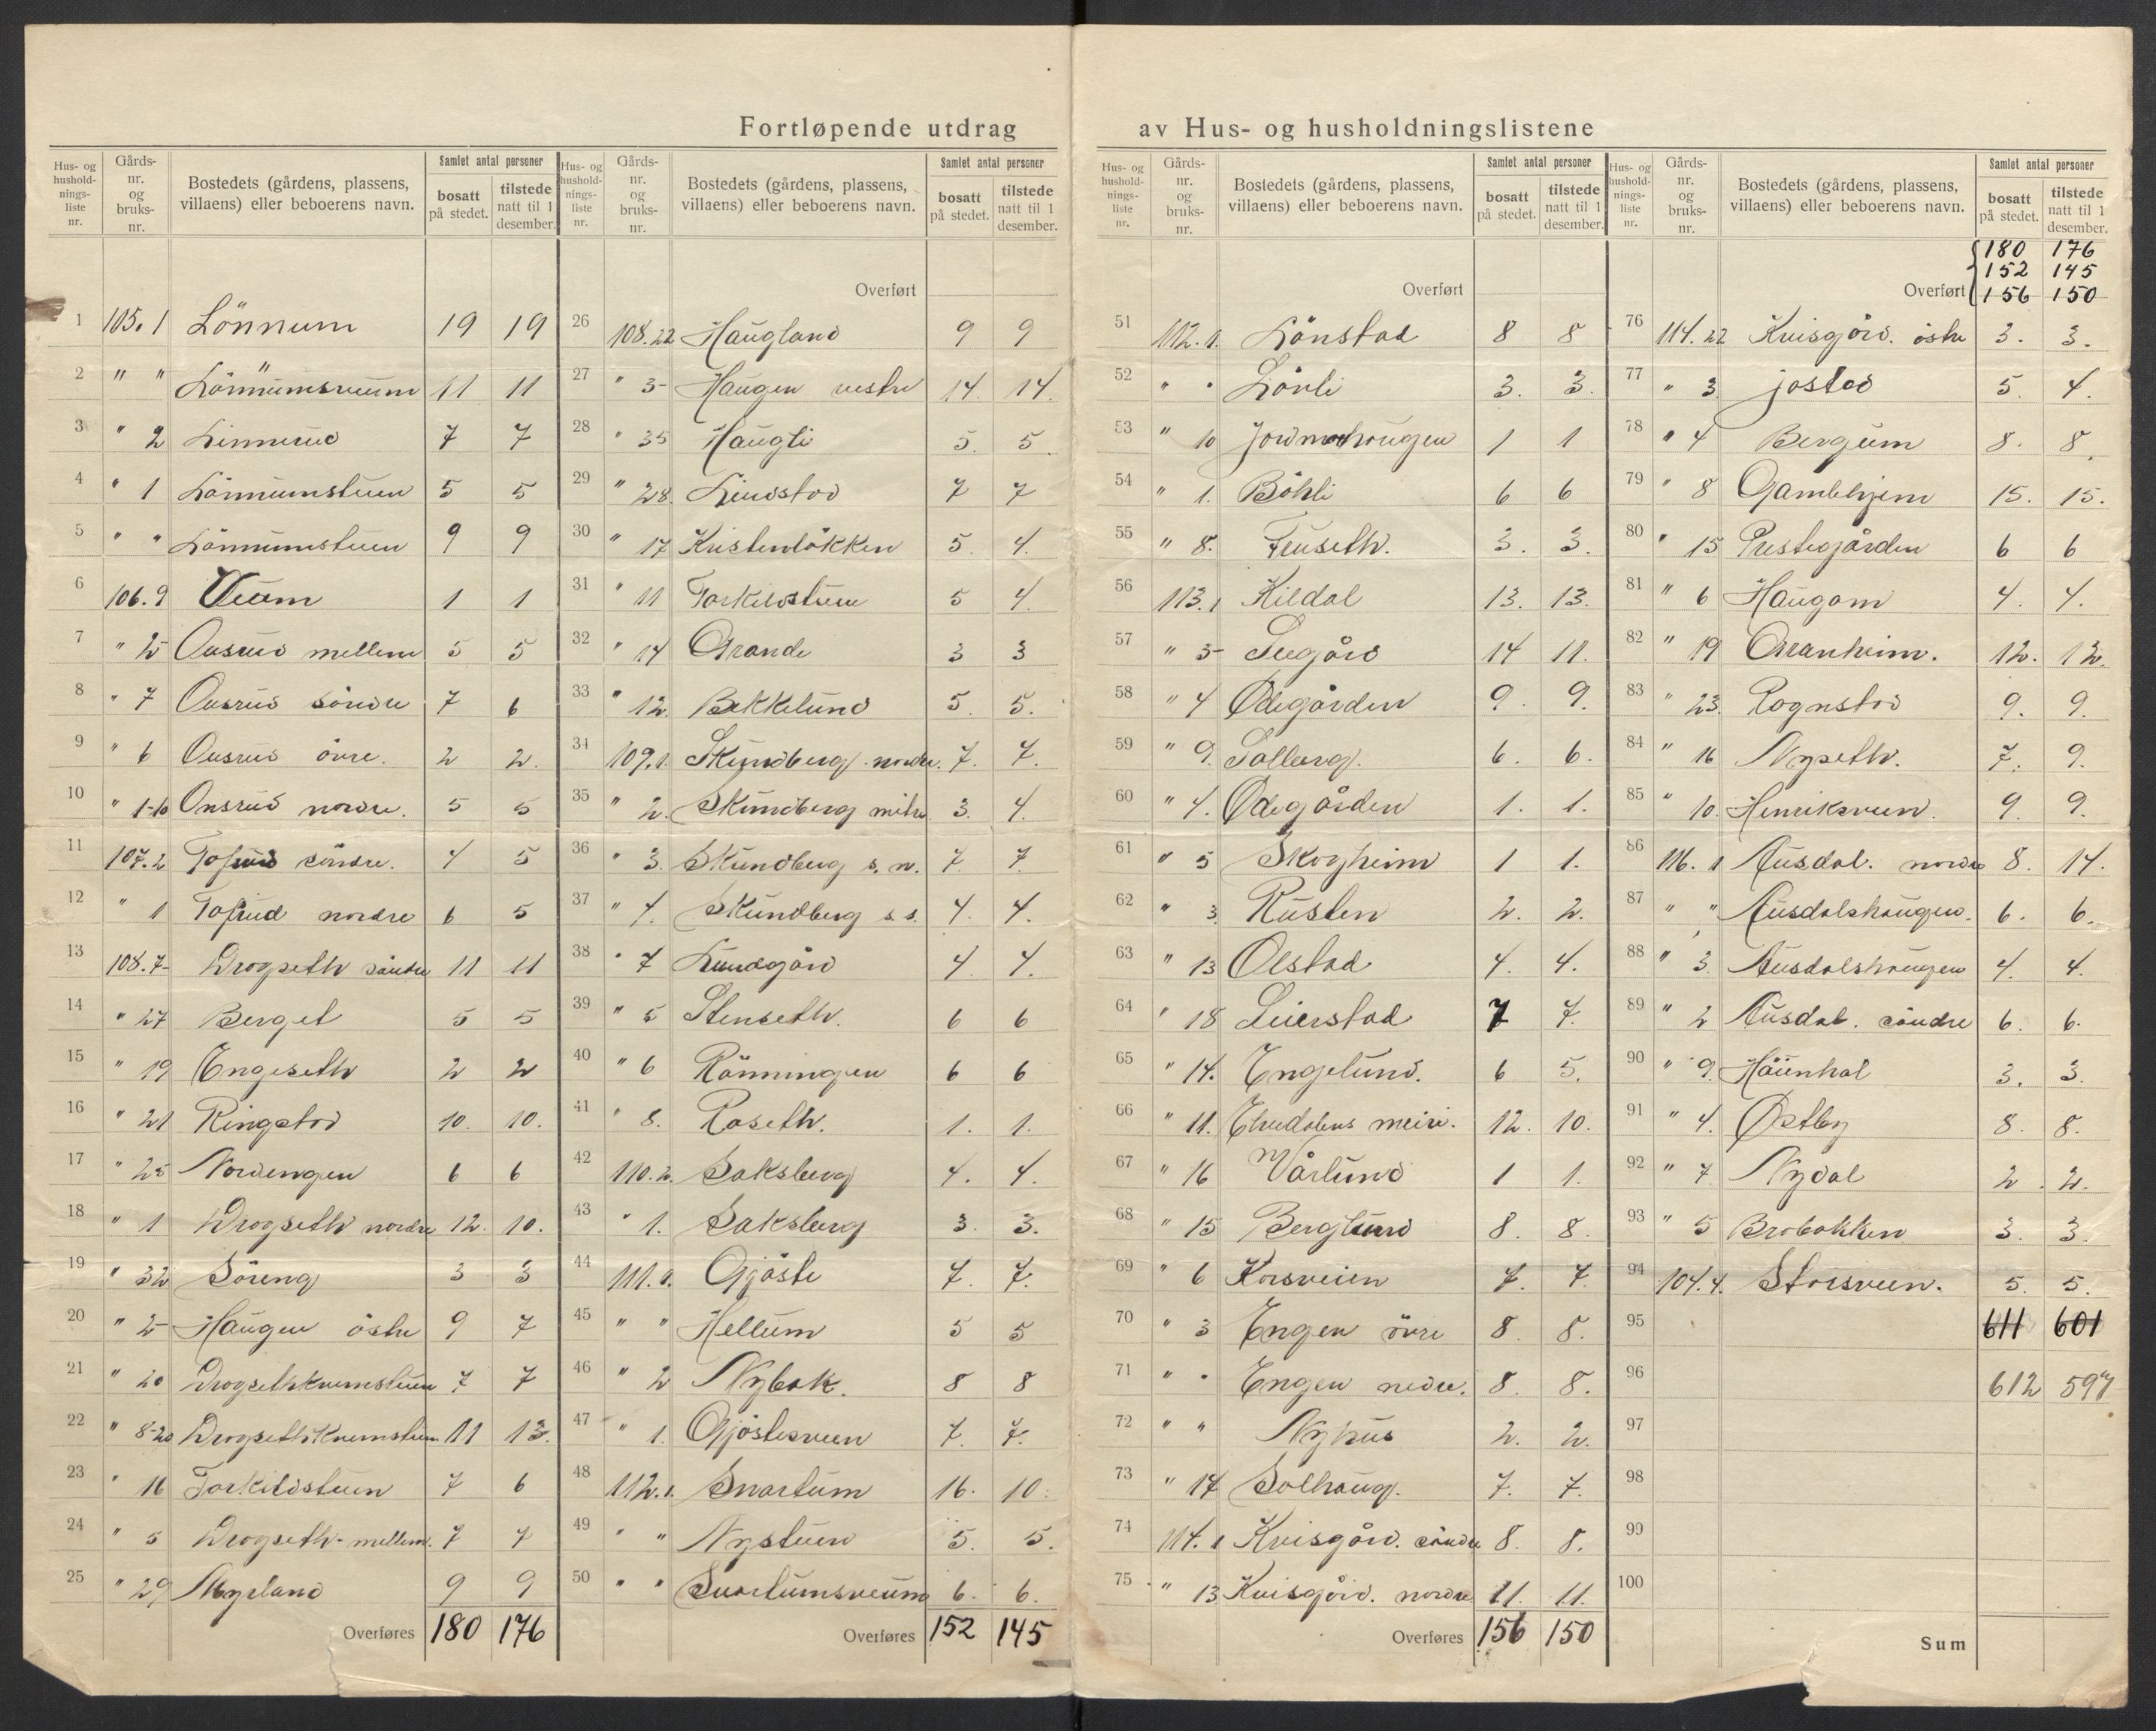 Fortløpende utdrag av Hus- og husholdningslistene
Hus- og husholdnings- liste nr. | Gårds- nr. og bruks- nr. | Bostedets (gårdens, plassens, villaens) eller beboerens navn. | Samlet antal personer | bosatt på stedet. | tilstede natt til 1 desember.
Overført
1 105.1 Lönnum 19 19
2 " " Lönnumsveum 11 11
3 " 2 Linnerud 7 7
4 " 1 Lönnumstuen 5 5
5 " " Lönnumstuen 9 9
6 106.9 Veum 1 1
7 " 2 Onsrud mellem 5 5
8 " 7 Onsrud söndre 7 6
9 " 6 Onsrud övre. 2 2.
10 " 1-10 Onsrud nordre. 5 5
11 107.2 Tofsrud söndre. 4 5
12 " 1 Tofsrud nordre 6 5
13 108.7- Drogseth söndre 11 11
14 " 27 Berget 5 5
15 " 19 Engeseth 2 2
16 " 21 Ringstad 10. 10.
17 " 25 Nordengen 6 6
18 " 1 Drogseth nordre 12. 10.
19 " 32 Söreng 3 3
20 " 2 Haugen östre 9 7
21 " 20 Drogsethkvernstuen 7 7
22 " 8-20 Drogsethkvernstuen 11 13.
23 " 16 Torkildstuen 7 6
24 " 5 Drogseth- mellem. 7 7
25 " 29 Myrland 9 9
Overføres 180 176
Hus- og husholdnings- liste nr. | Gårds- nr. og bruks- nr. | Bostedets (gårdens, plassens, villaens) eller beboerens navn. | Samlet antal personer | bosatt på stedet. | tilstede natt til 1 desember.
Overført
26 108.22 Haugland 9 9
27 " 3- Haugen vestre 14. 14.
28 " 35 Haugli 5. 5.
29 " 28. Lindstad 7 7
30 " 17 Kristenlökken 5. 4.
31 " 11 Torkildstuen 5 4.
32 " 14 Grande 3 3
33 " 12. Bekkelund 5. 5.
34 109.1. Skundberg nordre. 7. 7.
35 " 2. Skundberg mitre 3. 4.
36 " 3. Skundberg s. n. 7. 7.
37 " 4. Skundberg s. s. 4. 4.
38 " 7 Lundgård 4. 4.
39 " 5 Stenseth. 6 6
40 " 6 Rönningen 6 6
41 " 8. Roseth. 1. 1.
42 110.2. Saksberg 4. 4.
43 " 1. Saksberg 3. 3.
44 111.1. Gjöste 7. 7.
45 " " Hellum 5 5
46 " 2 Nybak. 8 8
47 " 1. Gjöstesveen 7. 7.
48 112.1. Svartum 16. 10.
49 " " Nystuen 5. 5.
50 " " Svartumsveum 6. 6.
Overføres 152 145
Hus- og husholdnings- liste nr. | Gårds- nr. og bruks- nr. | Bostedets (gårdens, plassens, villaens) eller beboerens navn. | Samlet antal personer | bosatt på stedet. | tilstede natt til 1 desember.
Overført
51 112.1. Lönstad 8 8
52 " " Lönli 3. 3.
53 " 10 Jordmorhaugen 1 1
54 " 1. Böhli 6 6
55 " 8. Fruseth. 3. 3.
56 113.1 Kildal 13. 13.
57 " 3- Seegård 14 11.
58 " 4 Ødegården 9. 9.
59 " 9. Solberg. 6. 6.
60 " 4. Ødegården 1. 1.
61 " 5 Skogheim 1 1.
62 " 3. Rusten 2. 2.
63 " 13 Olstad 4. 4.
64 " 18 Seierstad 7 7.
65 " 14. Engelund. 6 5.
66 " 11. meiri. 12. 10.
67 " 16 Vårlund 1 1.
68 " 15 Berglund 8. 8.
69 " 6 Korsveien 7. 7.
70 " 3 Engen övre 8. 8.
71 " " Engen nedre. 8. 8.
72 " " Nyhus 2. 2.
73 " 17 Solhaug. 7. 7.
74 114.1 Kvisgård. söndre 8. 8.
75 " 13 Kvisgård. nordre 11. 11.
Overføres 156 150
Hus- og husholdnings- liste nr. | Gårds- nr. og bruks- nr. | Bostedets (gårdens, plassens, villaens) eller beboerens navn. | Samlet antal personer | bosatt på stedet. | tilstede natt til 1 desember.
180 176
152 145
Overført 156 150
76 114.22 Kvisgård. östre 3. 3.
77 " 3 jostad 5. 4.
78 " 4 Bergum 8. 8.
79 " 8 Gamlehjem 15. 15.
80 " 15 Prestegården 6 6
81 " 6 Haugom 4. 4.
82 " 19 Granheim. 12. 12.
83 " 23. Rognstad 9. 9.
84 " 16 Nyseth. 7. 9.
85 " 10. Henriksveen. 9. 9.
86 116.1 Ausdal. nordre 8. 14.
87 " " Ausdalshaugen. 6. 6.
88 " 3. Ausdalshaugen 4. 4.
89 " 2 Ausdal. söndre 6. 6.
90 " 9. 3. 3.
91 " 4. Østby 8. 8.
92 " 7 Nydal 2. 2.
93 " 5 Brobakken 3. 3.
94 104.4. Storsveen. 5. 5.
95 611 601
96 612 597
97
98
99
100
Sum